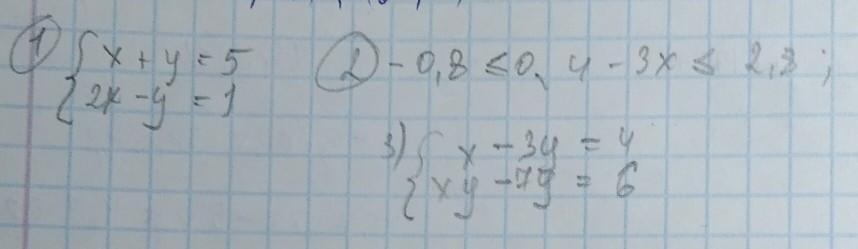 1) { x + y = 5
2x - y = 1
2) - 0,8 ≤ 0, 4 - 3x ≤ 2,8 ;
3) { x - 3y = 4
xy - 7y = 6